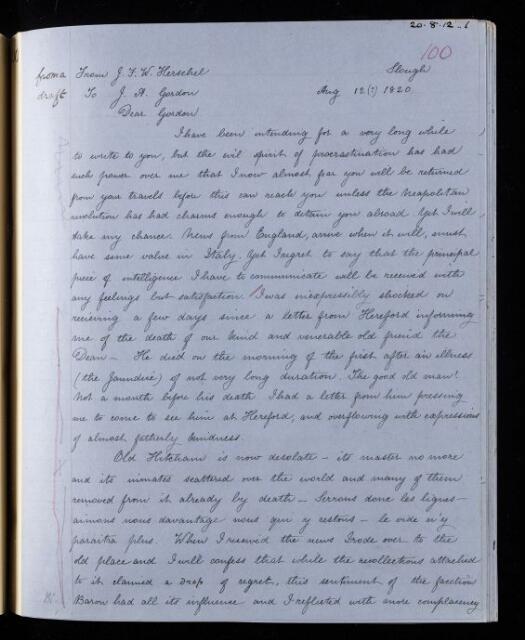 20.8.12..1
100
from a From J. F. W. Herschel Slough
draft To J. A. Gordon Aug 12(?) 1820
Dear Gordon
I have been intending for a very long while
to write to you, but the evil spirit of procrastination has had
such power over me that I now almost fear you will be returned
from your travels before this can reach you unless the Neapolitan
revolution has had charms enough to detain you abroad. Yet I will
take my chance. News from England, arrive when it will, must
have some value in Italy. Yet I regret to say that the principal
piece of intelligence I have to communicate will be received with
any feelings but satisfaction. I was inexpressibly shocked on
receiving a few days since a letter from Hereford informing
me of the death of our kind and venerable old freind the
Dean — He died on the morning of the first after an illness
(the Jaundice) of not very long duration. The good old man!
Not a month before his death I had a letter from him pressing
me to come to see him at Hereford, and overflowing with expressions
of almost fatherly kindness.
Old Hitcham is now desolate — its master no more
and its inmates scattered over the world and many of them
removed from it already by death — Serrons donc les lignes —
aimons nous davantage nous qui y restons — le vide n'y
paraitra plus. When I received the news I rode over to the
old place and I will confess that while the recollections attached
to it claimed a drop of regret, this sentiment of the facetious
Baron had all its influence and I reflected with more complacency